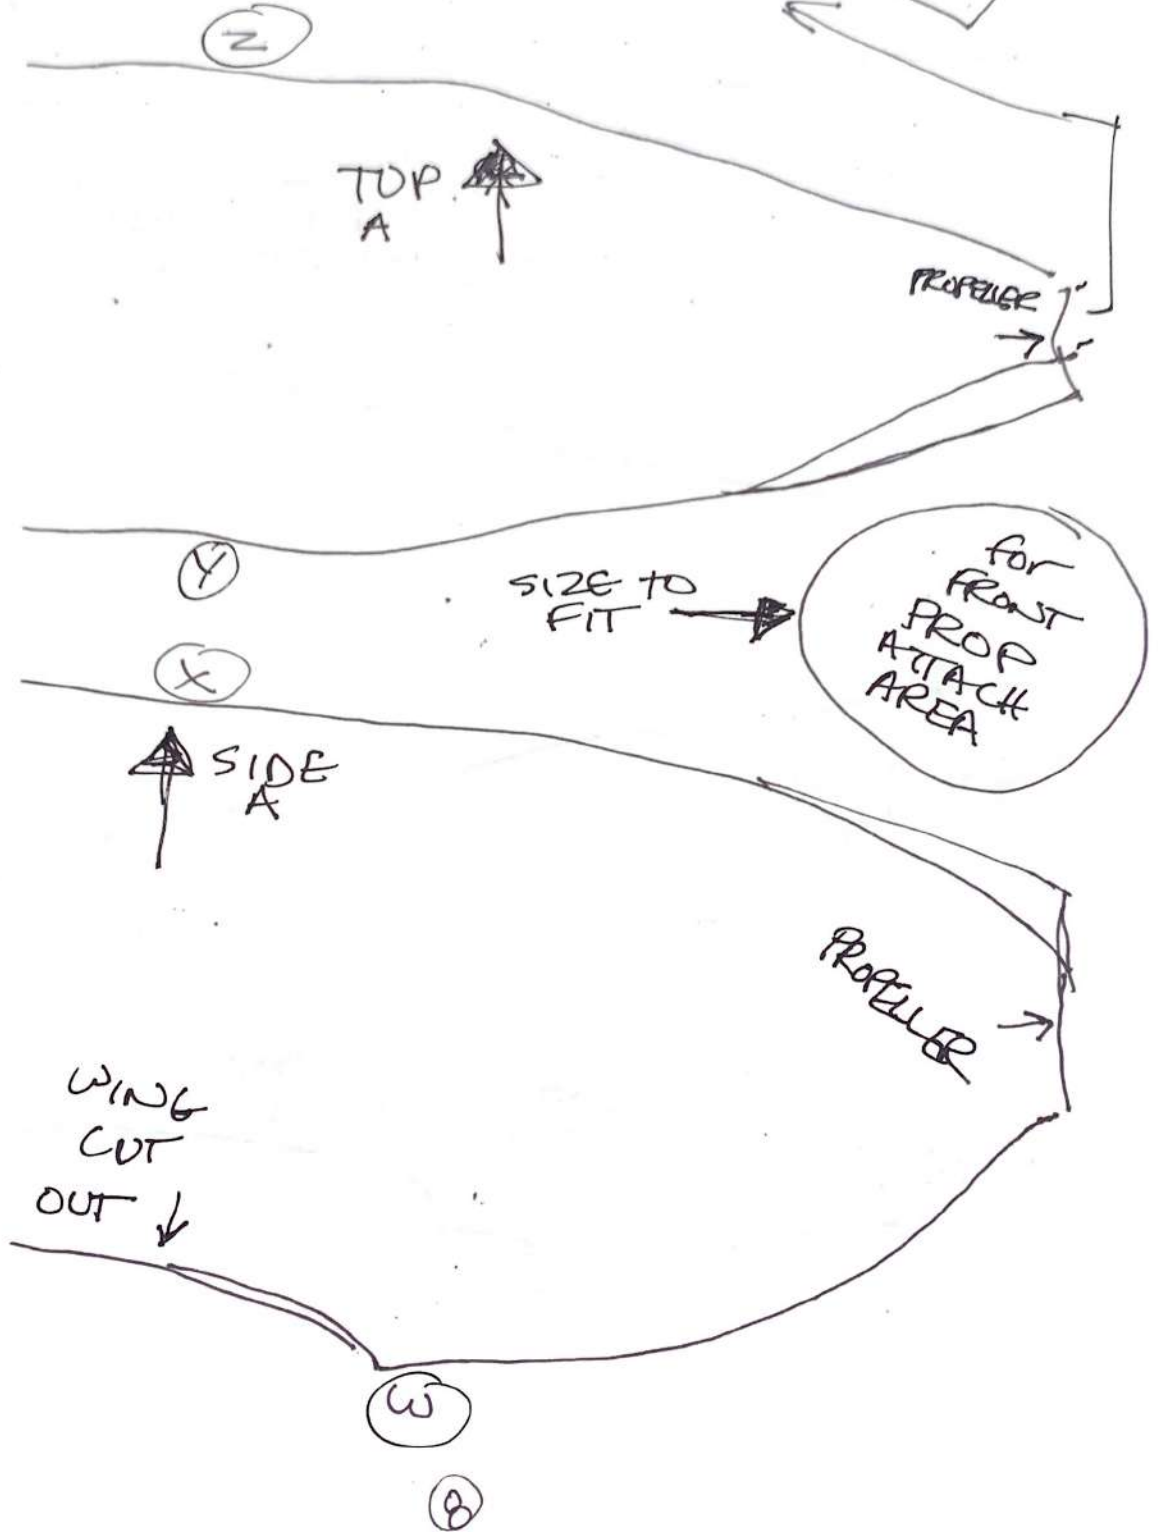 Z
TOP
A
PROPELLER
Y
SIZE TO
FIT
for
FRONT
PROP
ATTACH
AREA
X
SIDE
A
PROPELLER
WING
CUT
OUT
W
8